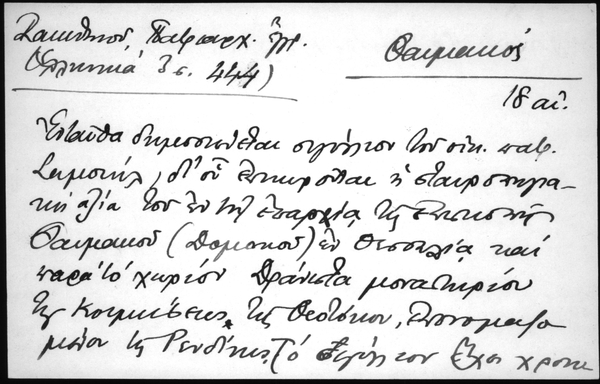 Σακελλίωνος, Πατριαρχ. ἔγγ.
(Ἑλληνικά 3 σ. 444)
Θαυμακός
18 αἰ.
Ἐνταῦθα δημοσιεύεται σιγίλλιον τοῦ οἰκ. πατρ.
Σαμουήλ, δι' οὗ ἐπικυροῦται ἡ σταυροπηγια-
κή ἀξία τοῦ ἐν τῇ ἐπαρχίᾳ τῆς ἐπισκοπῆς
Θαυμακοῦ (Δομοκοῦ) ἐν Θεσσαλίᾳ καί
παρά τό χωρίον Δράνιστα μοναστηρίου
τῆς Κοιμήσεως τῆς Θεοτόκου, ἐπονομαζο
μένου τῆς Ρενδίνης. Τό σιγίλλιον ἔχει χρονο